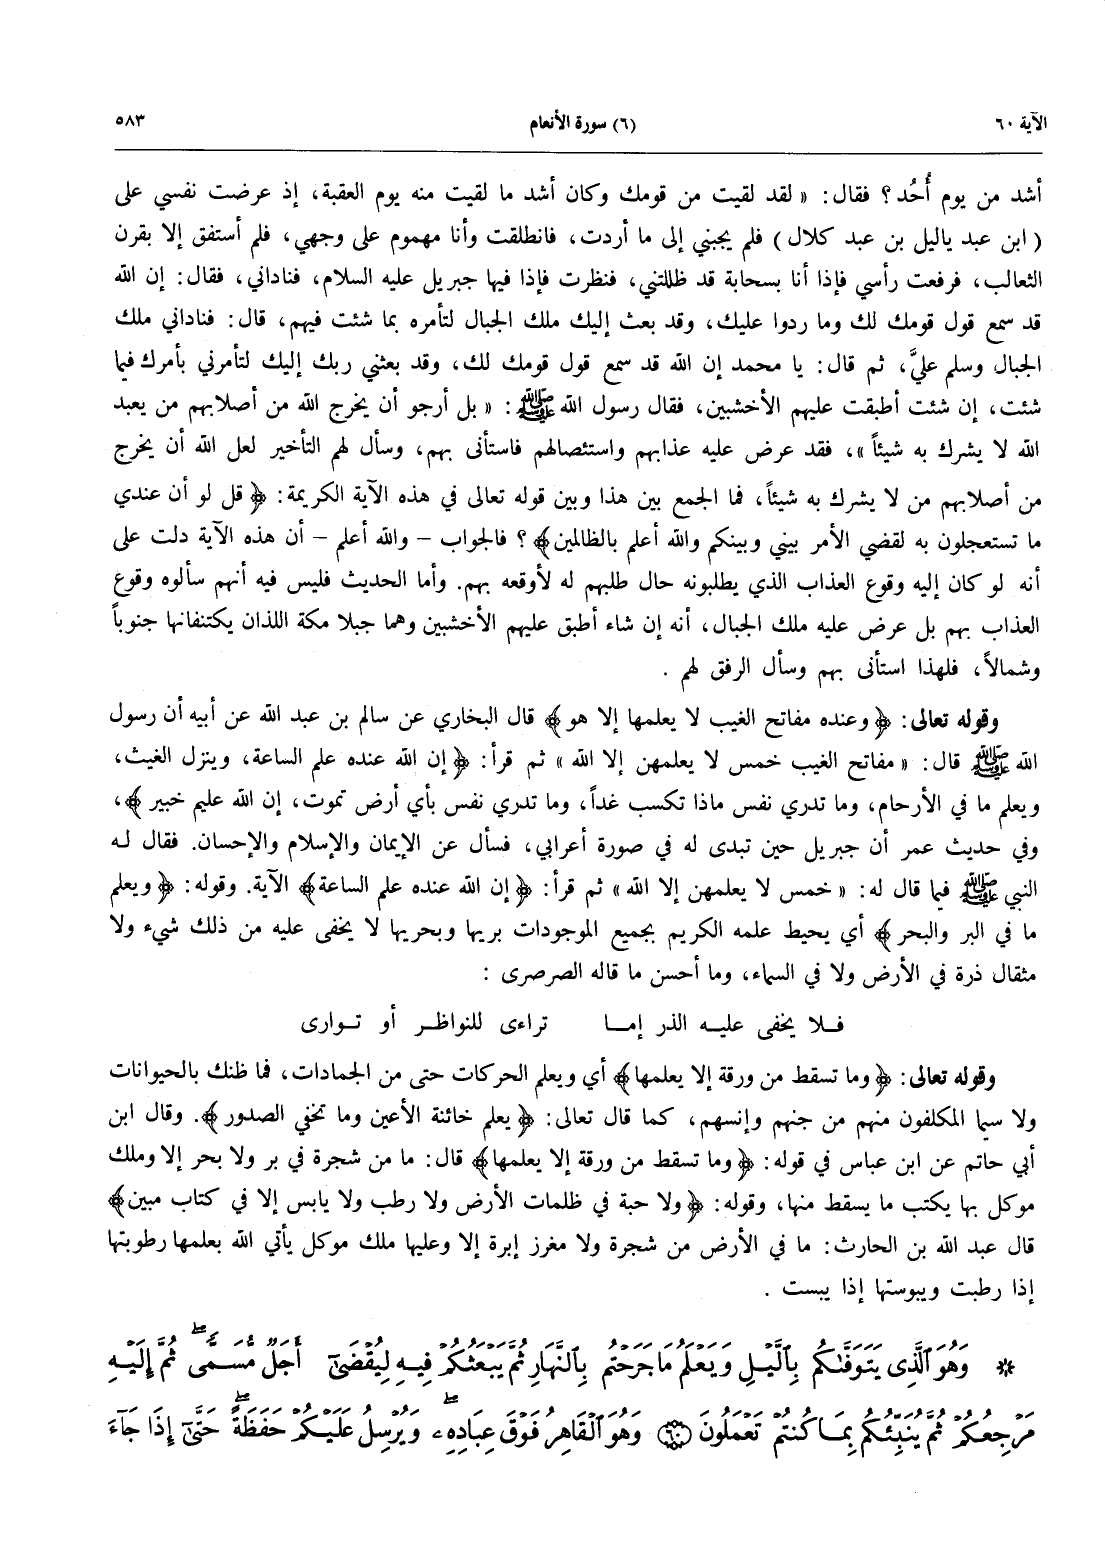 الآية ٦٠ (٦) سورة الأنعام ٥٨٣
أشد من يوم أُحُد؟ فقال: « لقد لقيت من قومك وكان أشد ما لقيت منه يوم العقبة، إذ عرضت نفسي على
( ابن عبد ياليل بن عبد كلال ) فلم يجبني إلى ما أردت، فانطلقت وأنا مهموم على وجهي، فلم أستفق إلا بقرن
الثعالب، فرفعت رأسي فإذا أنا بسحابة قد ظللتني، فنظرت فإذا فيها جبريل عليه السلام، فناداني، فقال: إن الله
قد سمع قول قومك لك وما ردوا عليك، وقد بعث إليك ملك الجبال لتأمره بما شئت فيهم، قال: فناداني ملك
الجبال وسلم عليَّ، ثم قال: يا محمد إن الله قد سمع قول قومك لك، وقد بعثني ربك إليك لتأمرني بأمرك فيما
شئت، إن شئت أطبقت عليهم الأخشبين، فقال رسول الله ﷺ: « بل أرجو أن يخرج الله من أصلابهم من يعبد
الله لا يشرك به شيئاً »، فقد عرض عليه عذابهم واستئصالهم فاستأنى بهم، وسأل لهم التأخير لعل الله أن يخرج
من أصلابهم من لا يشرك به شيئاً، فما الجمع بين هذا وبين قوله تعالى في هذه الآية الكريمة: ﴿ قل لو أن عندي
ما تستعجلون به لقضي الأمر بيني وبينكم والله أعلم بالظالمين﴾ ؟ فالجواب - والله أعلم - أن هذه الآية دلت على
أنه لو كان إليه وقوع العذاب الذي يطلبونه حال طلبهم له لأوقعه بهم. وأما الحديث فليس فيه أنهم سألوه وقوع
العذاب بهم بل عرض عليه ملك الجبال، أنه إن شاء أطبق عليهم الأخشبين وهما جبلا مكة اللذان يكتنفانها جنوباً
وشمالاً، فلهذا استأنى بهم وسأل الرفق لهم .
وقوله تعالى: ﴿ وعنده مفاتح الغيب لا يعلمها إلا هو﴾ قال البخاري عن سالم بن عبد الله عن أبيه أن رسول
الله ﷺ قال: « مفاتح الغيب خمس لا يعلمهن إلا الله » ثم قرأ: ﴿ إن الله عنده علم الساعة، وينزل الغيث،
ويعلم ما في الأرحام، وما تدري نفس ماذا تكسب غداً، وما تدري نفس بأي أرض تموت، إن الله عليم خبير ﴾،
وفي حديث عمر أن جبريل حين تبدى له في صورة أعرابي، فسأل عن الإيمان والإسلام والإحسان. فقال له
النبي ﷺ فيما قال له: « خمس لا يعلمهن إلا الله» ثم قرأ: ﴿ إن الله عنده علم الساعة﴾ الآية. وقوله: ﴿ ويعلم
ما في البر والبحر ﴾ أي يحيط علمه الكريم بجميع الموجودات بريها وبحريها لا يخفى عليه من ذلك شيء ولا
مثقال ذرة في الأرض ولا في السماء، وما أحسن ما قاله الصرصرى :
فلا يخفى عليه الذر إما تراءى للنواظر أو توارى
وقوله تعالى: ﴿ وما تسقط من ورقة إلا يعلمها﴾ أي ويعلم الحركات حتى من الجمادات، فما ظنك بالحيوانات
ولا سيما المكلفون منهم من جنهم وإنسهم، كما قال تعالى: ﴿ يعلم خائنة الأعين وما تخفي الصدور ﴾. وقال ابن
أبي حاتم عن ابن عباس في قوله: ﴿ وما تسقط من ورقة إلا يعلمها﴾ قال: ما من شجرة في بر ولا بحر إلا وملك
موكل بها يكتب ما يسقط منها، وقوله: ﴿ ولا حبة في ظلمات الأرض ولا رطب ولا يابس إلا في كتاب مبين ﴾
قال عبد الله بن الحارث: ما في الأرض من شجرة ولا مغرز إبرة إلا وعليها ملك موكل يأتي الله بعلمها رطوبتها
إذا رطبت ويبوستها إذا يبست .
۞ وَهُوَ ٱلَّذِى يَتَوَفَّىٰكُم بِٱلَّيْلِ وَيَعْلَمُ مَا جَرَحْتُم بِٱلنَّهَارِ ثُمَّ يَبْعَثُكُمْ فِيهِ لِيُقْضَىٰٓ أَجَلٌ مُّسَمًّى ۖ ثُمَّ إِلَيْهِ
مَرْجِعُكُمْ ثُمَّ يُنَبِّئُكُم بِمَا كُنتُمْ تَعْمَلُونَ ﴿٦٠﴾ وَهُوَ ٱلْقَاهِرُ فَوْقَ عِبَادِهِۦ ۖ وَيُرْسِلُ عَلَيْكُمْ حَفَظَةً ۖ حَتَّىٰٓ إِذَا جَآءَ